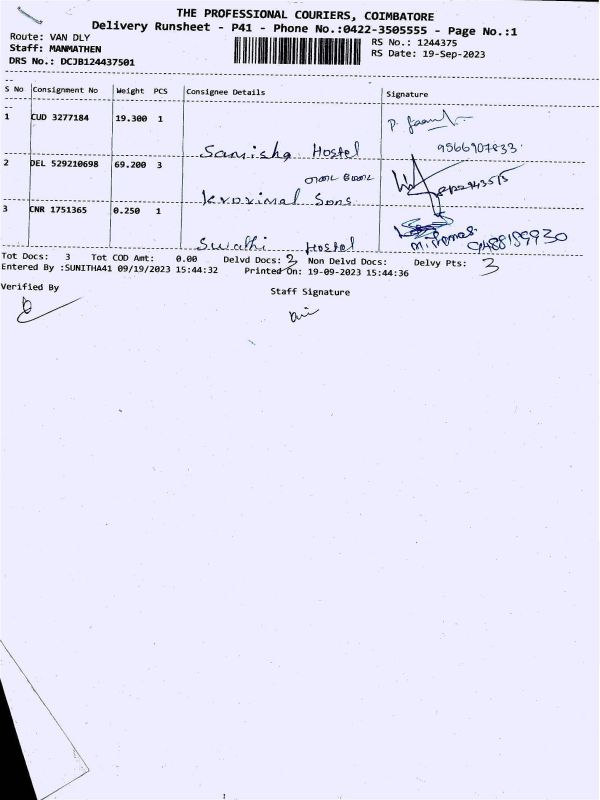 THE PROFESSIONAL COURIERS, COIMBATORE
Delivery Runsheet - P41 - Phone No.:0422-3505555 - Page No.:1
Route: VAN DLY
Staff: MANMATHEN
DRS No.: DCJB124437501
RS No.: 1244375
RS Date: 19-Sep-2023
S No Consignment No Weight PCS Consignee Details Signature
1 CUD 3277184 19.300 1
Samisha Hostel 9566907833
2 DEL 529210698 69.200 3
Sons
3 CNR 1751365 0.250 1
Hostel
Tot Docs: 3 Tot COD Amt: 0.00 Delvd Docs: 3 Non Delvd Docs: Delvy Pts: 3
Entered By :SUNITHA41 09/19/2023 15:44:32 Printed On: 19-09-2023 15:44:36
Verified By
Staff Signature